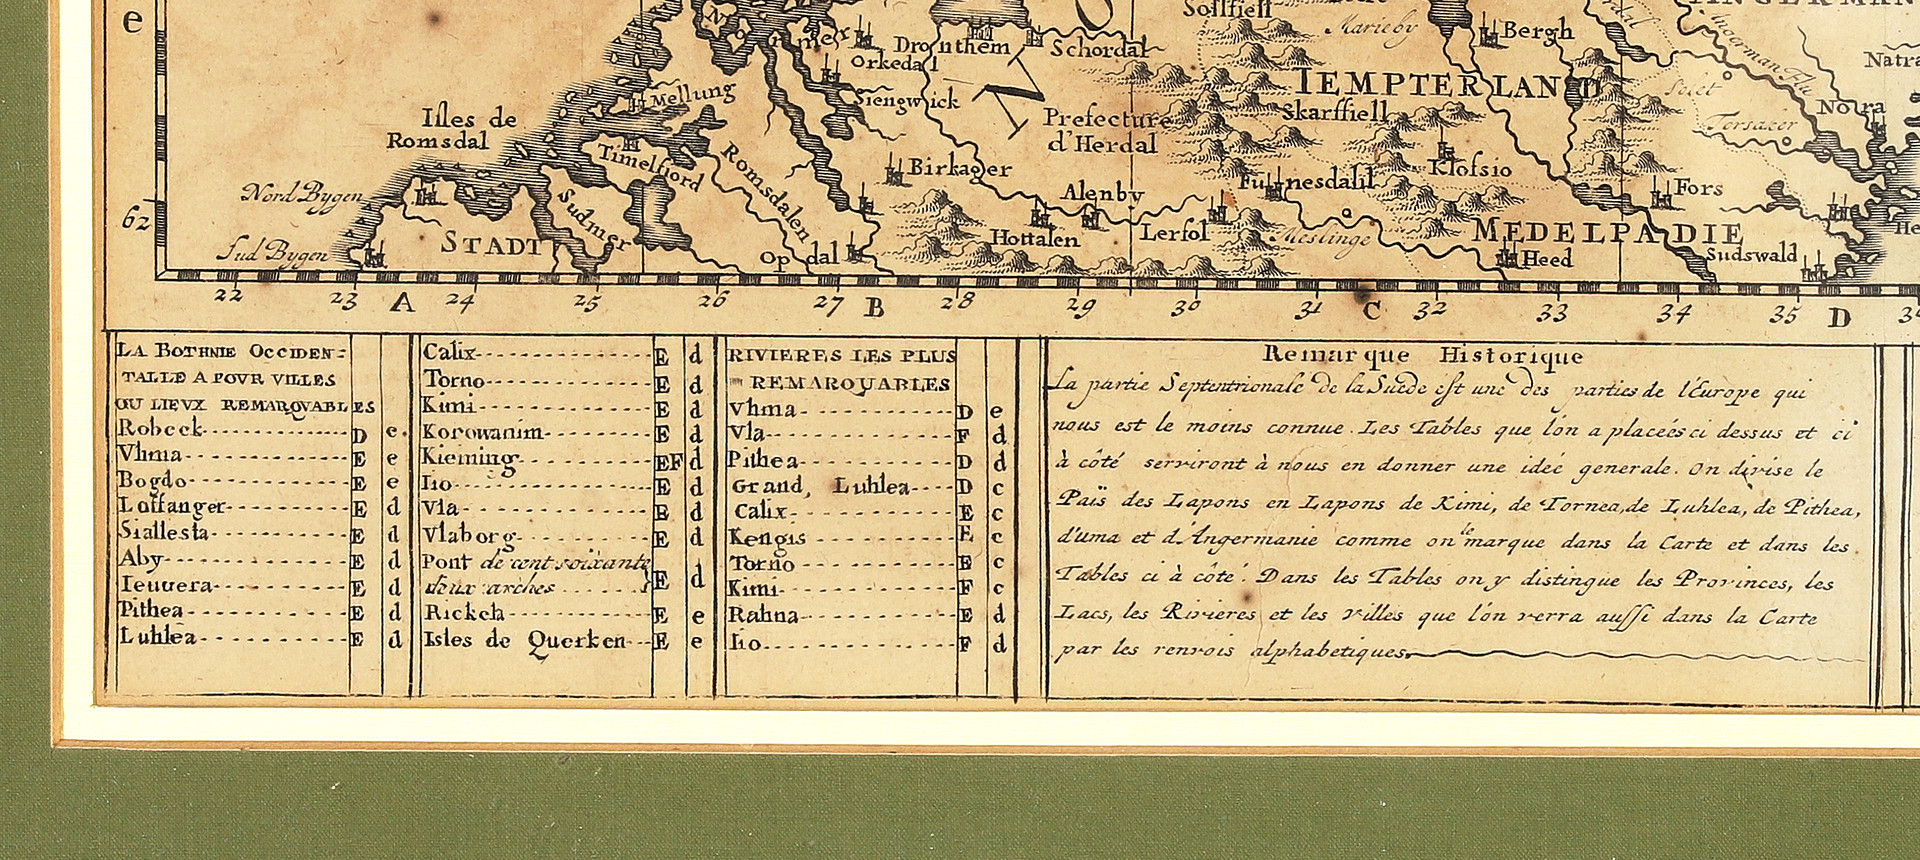 e
Sollfiell
Marieby
Bergh
Dronthem
Schordal
Orkedal
Natra
Mellung
Siengwick
IEMPTERLAND
Selet
Notra
Isles de
Romsdal
Skarsfiell
Prefecture
d'Herdal
Torsazer
Timelfiord
Romsdalen
Birkager
Klofsio
Nord Bygen
Alenby
Funnesdall
Fors
62
Sudmer
Sud Bygen
STADT
Opdal
Hottalen
Lerfol
Meslinge
MEDELPADIE
Heed
Sudswald
22 23 A 24 25 26 27 B 28 29 30 31 C 32 33 34 35 D
LA BOTHNIE OCCIDEN-
TALLE A POVR VILLES
OU LIEVX REMARQVABLES
Robeck D e
Vhma E e
Bogdo E e
Loffanger E d
Siallesta E d
Aby E d
Ieuuera E d
Pithea E d
Luhlea E d
Calix E d
Torno E d
Kimi E d
Korowanim E d
Kieming EF d
Iio E d
Vla E d
Vlaborg E d
Pont de cent soixante
deux arches E d
Rickela E e
Isles de Querken E e
RIVIERES LES PLUS
REMARQUABLES
Vhma D e
Vla F d
Pithea D d
Grand, Luhlea D c
Calix E c
Kengis E c
Torno E c
Kimi F c
Rahna E d
Iio F d
Remarque Historique
La partie Septentrionale de la Suede est une des parties de l'Europe qui
nous est le moins connue. Les Tables que l'on a placeés ci dessus et ci
à côté serviront à nous en donner une ideé generale. On divise le
Païs des Lapons en Lapons de Kimi, de Tornea, de Luhlea, de Pithea,
d'uma et d'Angermanie comme on le marque dans la Carte et dans les
Tables ci à côté. Dans les Tables on y distingue les Provinces, les
Lacs, les Rivieres et les villes que l'on verra aussi dans la Carte
par les renvois alphabetiques.